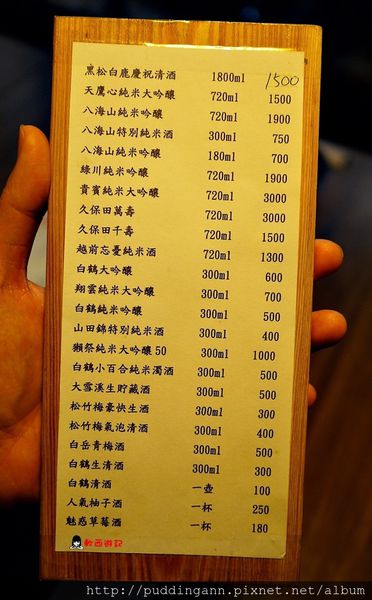 黑松白鹿慶祝清酒 1800ml 1500
天鷹心純米大吟釀 720ml 1500
八海山純米吟釀 720ml 1900
八海山特別純米酒 300ml 750
八海山純米吟釀 180ml 700
綠川純米吟釀 720ml 1900
貴賓純米大吟釀 720ml 3000
久保田萬壽 720ml 3000
久保田千壽 720ml 1500
越前忘憂純米酒 720ml 1300
白鶴大吟釀 300ml 600
翔雲純米大吟釀 300ml 700
白鶴純米吟釀 300ml 500
山田錦特別純米酒 300ml 400
獺祭純米大吟釀50 300ml 1000
白鶴小百合純米濁酒 300ml 500
大雪溪生貯藏酒 300ml 500
松竹梅豪快生酒 300ml 300
松竹梅氣泡清酒 300ml 400
白岳青梅酒 300ml 500
白鶴生清酒 300ml 300
白鶴清酒 一壺 100
人氣柚子酒 一杯 250
魅惑草莓酒 一杯 180
軟西遊記
http://puddingann.pixnet.net/album